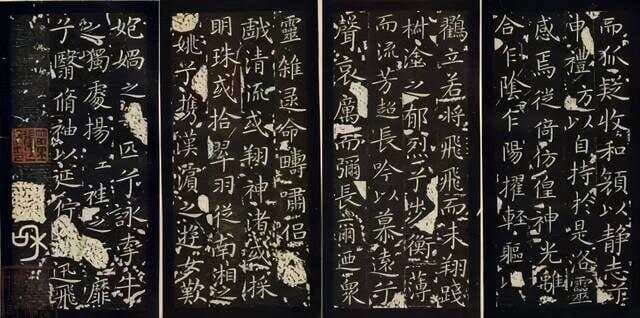 而狐疑收和顏以靜志兮
申禮方以自持於是洛靈
感焉徙倚仿偟神光離
合乍陰乍陽擢輕軀以
鸖立若將飛飛而未翔踐
椒塗之郁烈兮步衡薄
而流芳超長吟以慕遠兮
聲哀厲而彌長爾迺衆
靈雜遝命疇嘯侶
戲清流或翔神渚或採
明珠或拾翠羽從南湘之
姚兮攜漢濱之遊女歎
妃媧之匹兮詠牽牛
之獨處揚袿之靡
兮翳脩袖以延佇迅飛